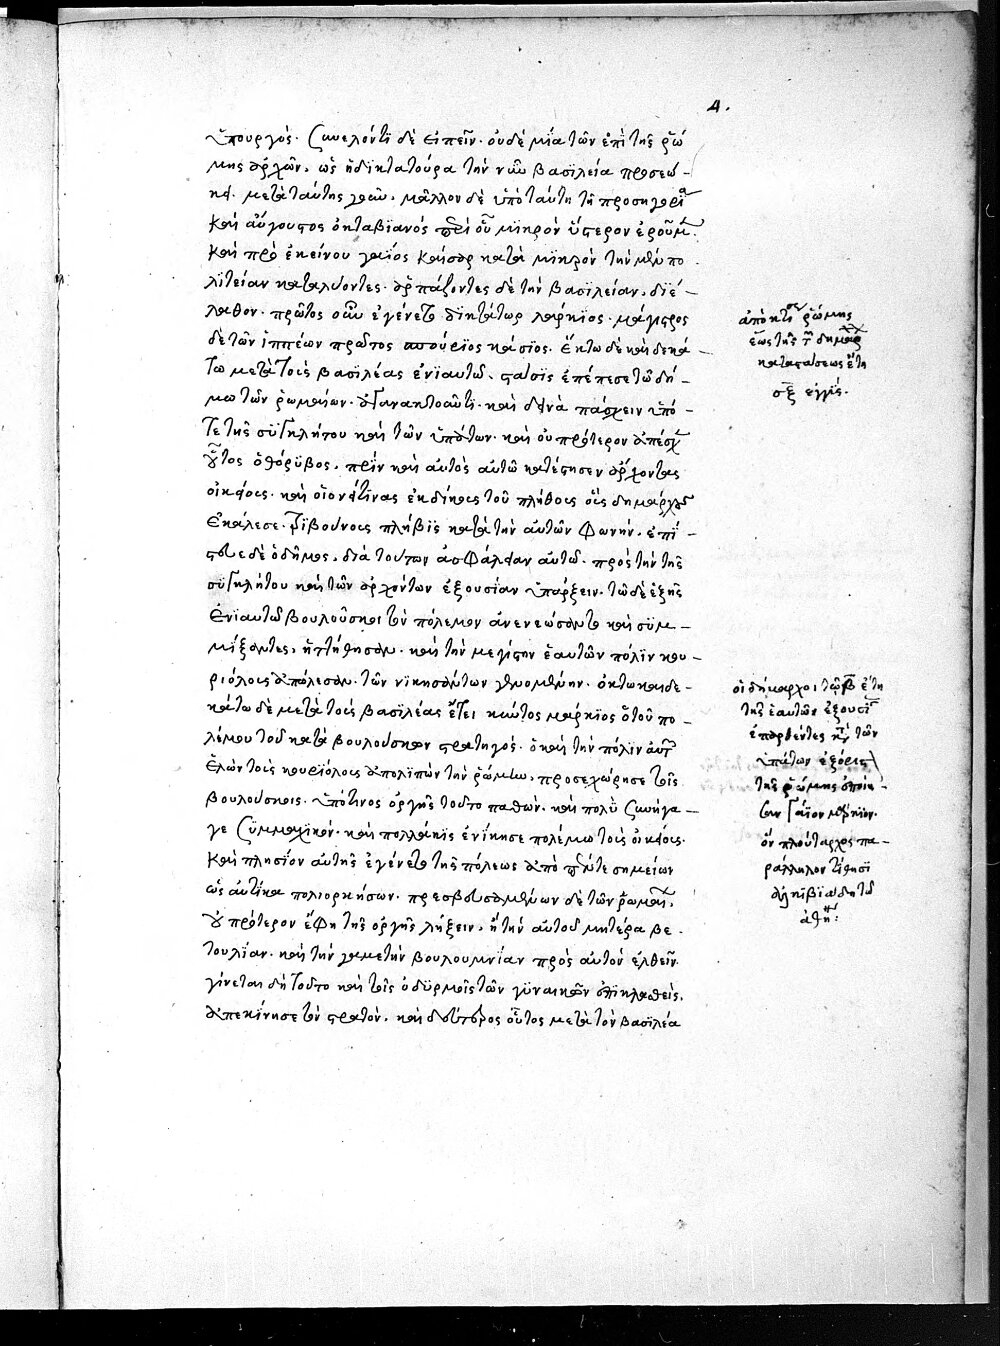 4.
ὑπουργός. συνελόντι δὲ εἰπεῖν. οὐδὲ μία τῶν ἐπὶ τῆς ῥώ
μης ἀρχῶν, ὡς ἡ δικτατοῦρα τὴν νῦν βασιλεία προσεώ-
κει. μετὰ ταύτης γοῦν, μᾶλλον δὲ ὑπὸ ταύτη τῇ προσηγορί
καὶ αὔγουστος ὀκταβιανός περὶ οὗ μικρὸν ὕστερον ἐροῦμ
καὶ πρὸ ἐκείνου γαΐος καίσαρ κατὰ μικρὸν τὴν μὲν πο
λιτείαν καταλύοντες. ἁρπάζοντες δὲ τὴν βασιλείαν, διέ-
λαθον. πρῶτος οὖν ἐγένετο δικτάτωρ λάρκιος. μάγιστρος
δὲ τῶν ἱππέων πρῶτος σπούριος κάσιος. ἕκτω δὲ καὶ δεκά-
τω μετὰ τοὺς βασιλέας ἐνιαυτῶ. στάσις ἐπέπεσε τῶ δή-
μω τῶν ῥωμαίων. ἀγανακτοῦντι. καὶ δεινὰ πάσχειν ὑπό-
τε τῆς συγκλήτου καὶ τῶν ὑπάτων. καὶ οὐ πρότερον ἀπέσχ
οὗτος ὁ θόρυβος, πρὶν καὶ αὐτὸς αὑτῶ κατέστησεν ἄρχοντας
οἰκείους. καὶ οἱονεί τινας ἐκδίκους τοῦ πλήθους οὓς δημάρχους
ἐκάλεσε. τριβούνους πλήβις κατὰ τὴν αὐτῶν φωνήν. ἐπί-
στευε δὲ ὁ δῆμος, διὰ τούτων ἀσφάλειαν αὐτῶ. πρὸς τὴν τῆς
συγκλήτου καὶ τῶν ἀρχόντων ἐξουσίαν ὑπάρξειν. τῶ δὲ ἑξῆς
ἐνιαυτῶ βουλοῦσκοι τὸν πόλεμον ἀνενεώσαντο καὶ συμ-
μίξαντες, ἡττήθησαν. καὶ τὴν μεγίστην ἑαυτῶν πόλιν κου-
ριόλους ἀπώλεσαν. τῶν νικησάντων γενομένην. ὀκτωκαιδε-
κάτω δὲ μετὰ τοὺς βασιλέας ἔτει κιύντος μάρκιος ὁ τοῦ πο-
λέμου τοῦ κατὰ βουλούσκων στρατηγός. ὁ καὶ τὴν πόλιν αὐτ
ἑλὼν τοὺς κουριόλους ἀπολιπὼν τὴν ῥώμην, προσεχώρησε τοῖς
βουλούσκοις. ὑπό τινος ὀργῆς τοῦτο παθών. καὶ πολὺ συνήγα-
γε συμμαχικόν. καὶ πολλάκις ἐνίκησε πολέμω τοὺς οἰκείους.
καὶ πλησίον αὐτῆς ἐγένετο τῆς πόλεως ἀπὸ πέντε σημείων
ὡς αὐτίκα πολιορκήσων. πρεσβευσαμένων δὲ τῶν ῥωμαί,
οὐ πρότερον ἔφη τῆς ὀργῆς λήξειν. ἢ τὴν αὐτοῦ μητέρα βε-
τουλίαν. καὶ τὴν γαμετὴν βουλουμνίαν πρὸς αὐτὸν ἐλθεῖν.
γίνεται δὴ τοῦτο καὶ τοῖς ὀδυρμοῖς τῶν γυναικῶν ἐπικλασθείς,
ἀπεκίνησε τὸν στρατόν. καὶ δεύτερος οὗτος μετὰ τὸν βασιλέα
ἀπὸ κτίσε ῥώμης
ἕως τῆς τ δημαρχ
καταστάσεως ἔτη
σξ ἐγγύς.
οἱ δήμαρχοι τῶ β ἔτη
τῆς ἑαυτῶν ἐξουσί
ἐπαρθέντες κατὰ τῶν
ὑπάτων ἐξόριστ
τῆς ῥώμης ἐποίη-
σαν γάϊον μάρκιον.
ὃν πλούταρχος πα-
ράλληλον τίθησι
ἀλκιβιάδη τῶ
ἀθη: